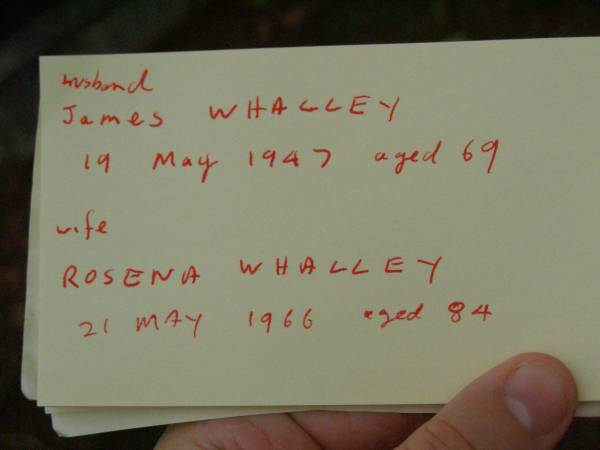 husband
James WHALLEY
19 May 1947 aged 69
wife
ROSENA WHALLEY
21 MAY 1966 aged 84